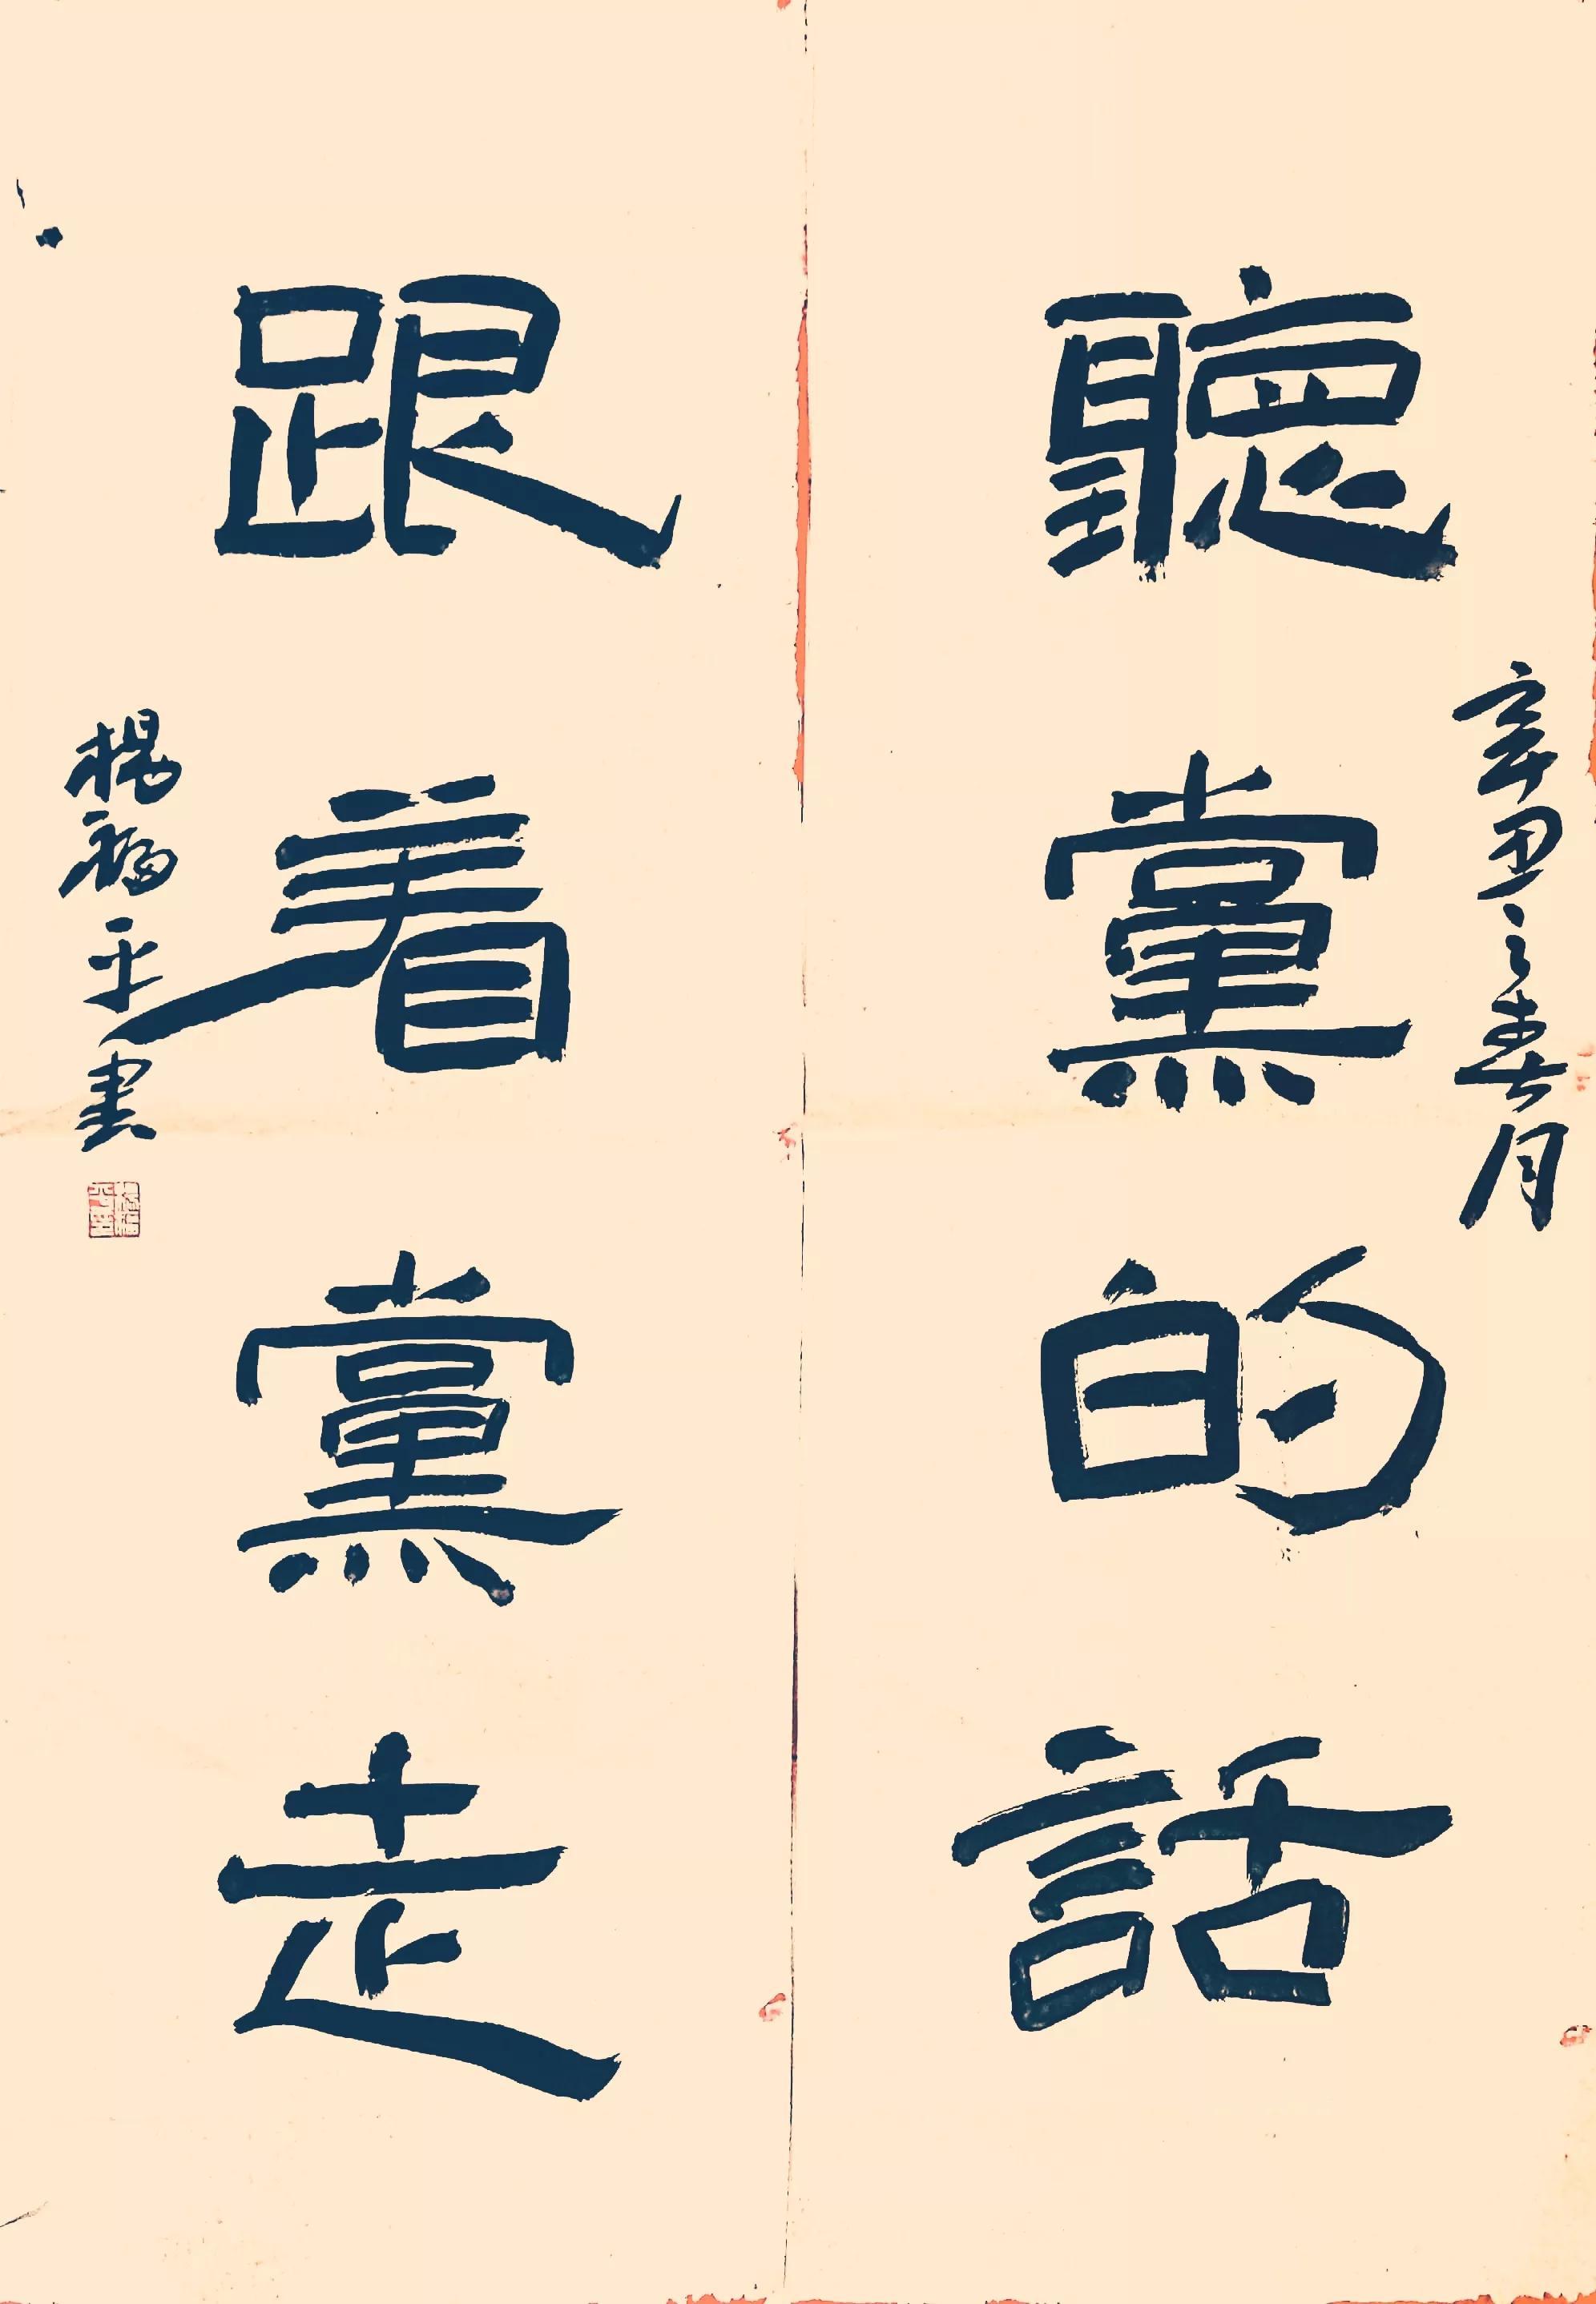 聽黨的話
辛丑之春月
跟着黨走
楊福平書